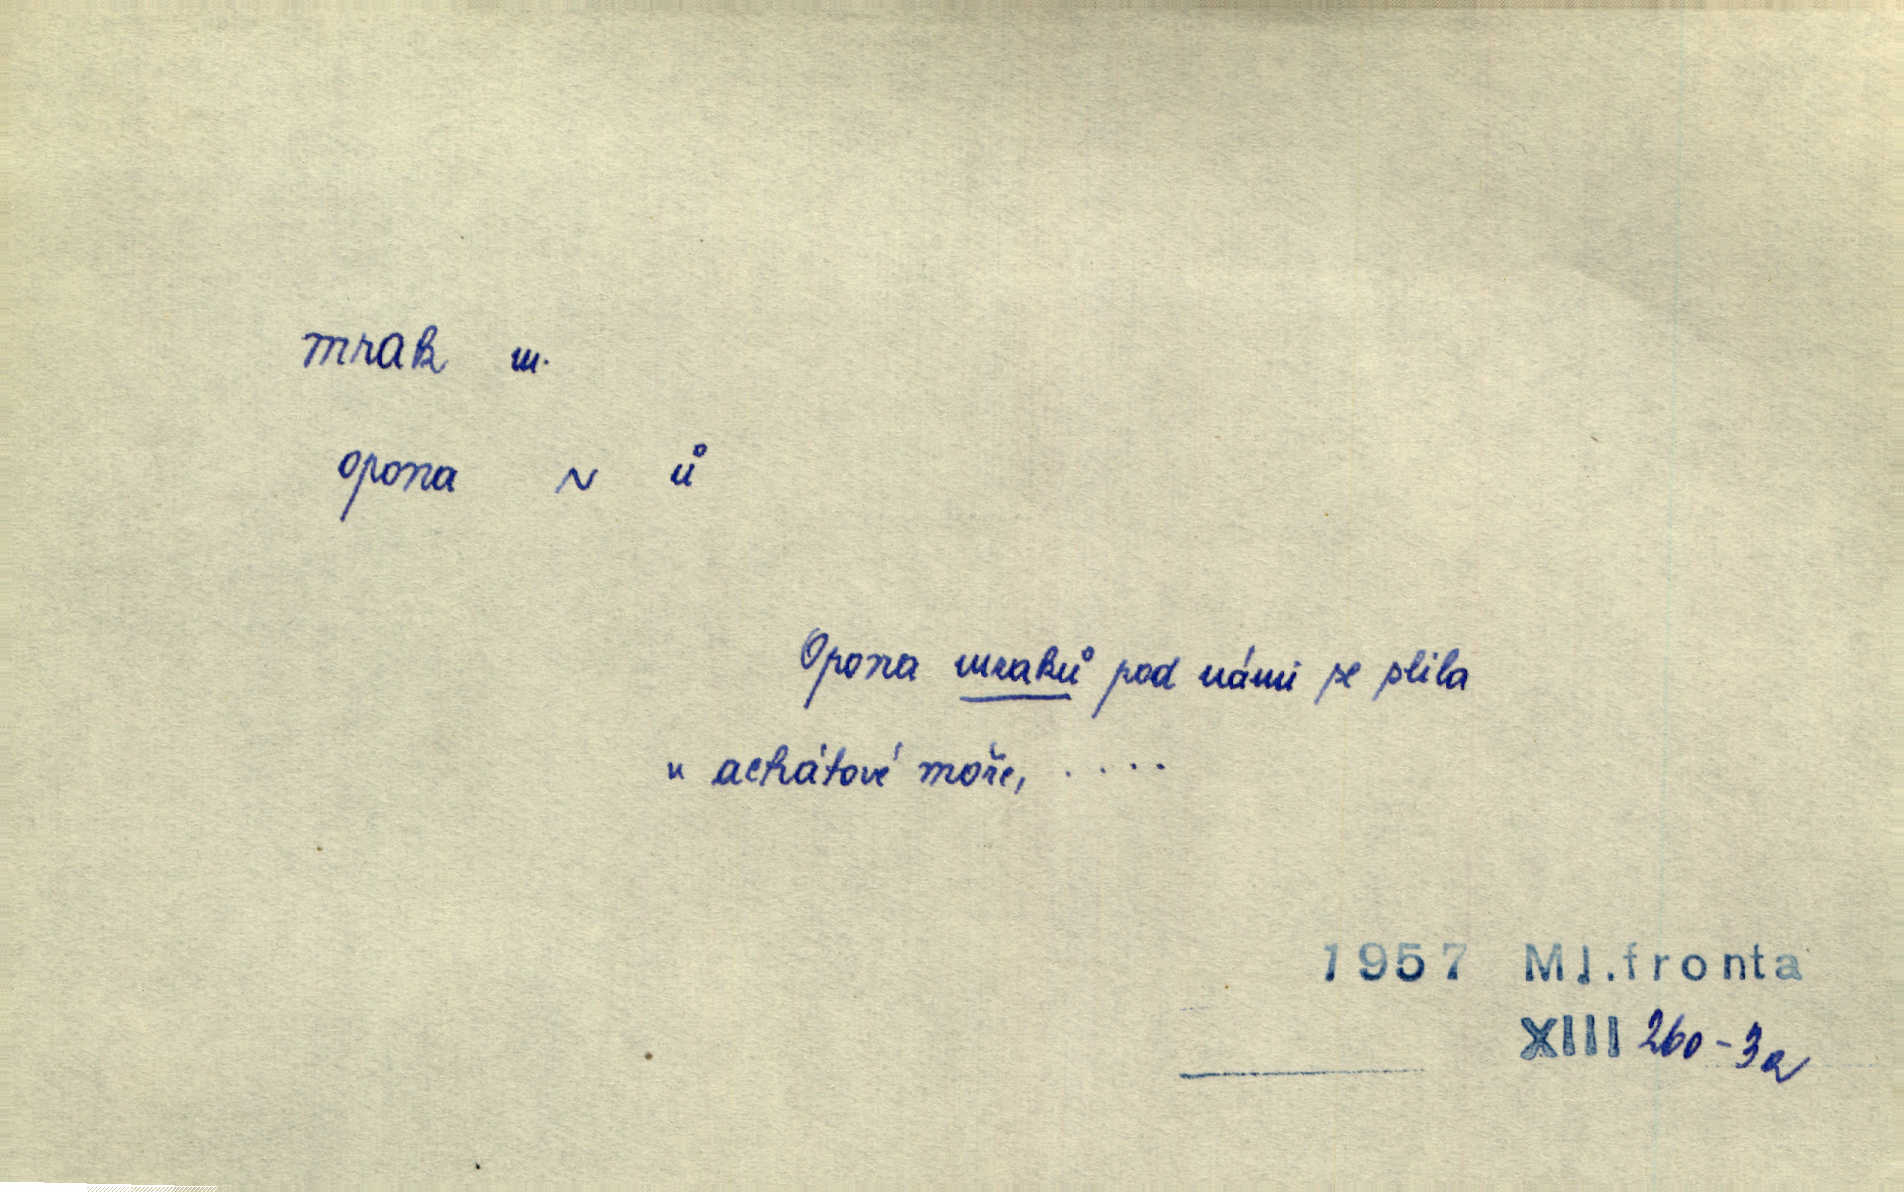 mrak m.
opona ~ ů
Opona mraků pod námi se slila
v achátové moře, . . . .
1957 Ml.fronta
XIII 260-3a